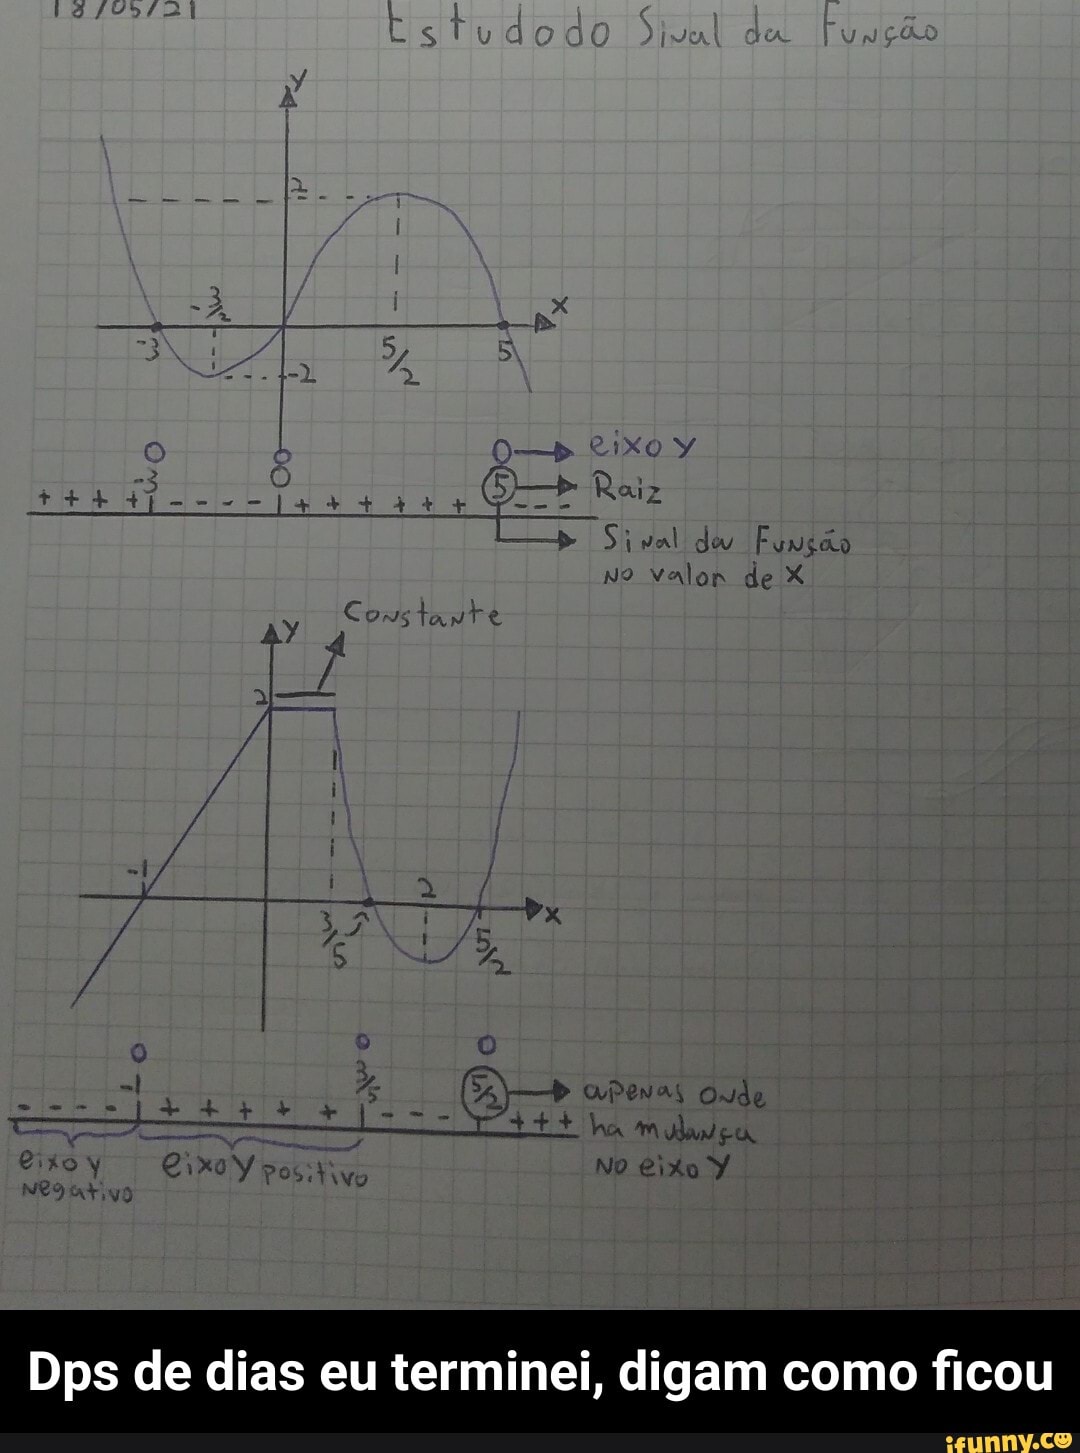 18/05/21
Estudo do Sinal da Função
y
2
-3/2
x
-3
5/2
5
-2
0
0
0
eixo y
-3
0
5
Raiz
+ + + + - - - - + + + + + + - - -
Sinal da Função
no valor de x
Constante
y
2
-1
2
x
3/5
5/2
0
0
0
-1
3/5
5/2
apenas onde
- - - - + + + + + - - - + + +
ha mudança
eixo y
eixo y positivo
no eixo y
negativo
Dps de dias eu terminei, digam como ficou
ifunny.co